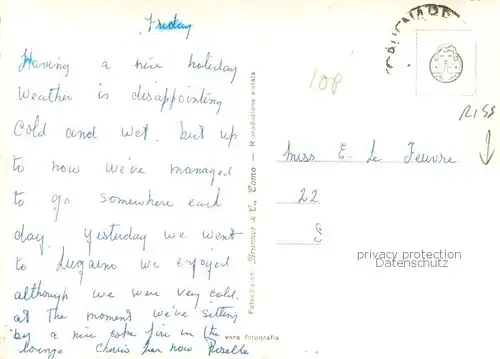 Friday
Having a nice holiday
weather is disappointing
cold and wet. but up
to now we've managed
to go somewhere each
day. Yesterday we went
to Lugarno we enjoyed
although we were very cold.
at the moment we're sitting
by a nice coke fire in the
lounge cheerio for now
vera fotografia
Fotoedizioni Brunner & C., Como — Riproduzione vietata
108
R155
Miss E. Le Feuvre
22
privacy protection
Datenschutz